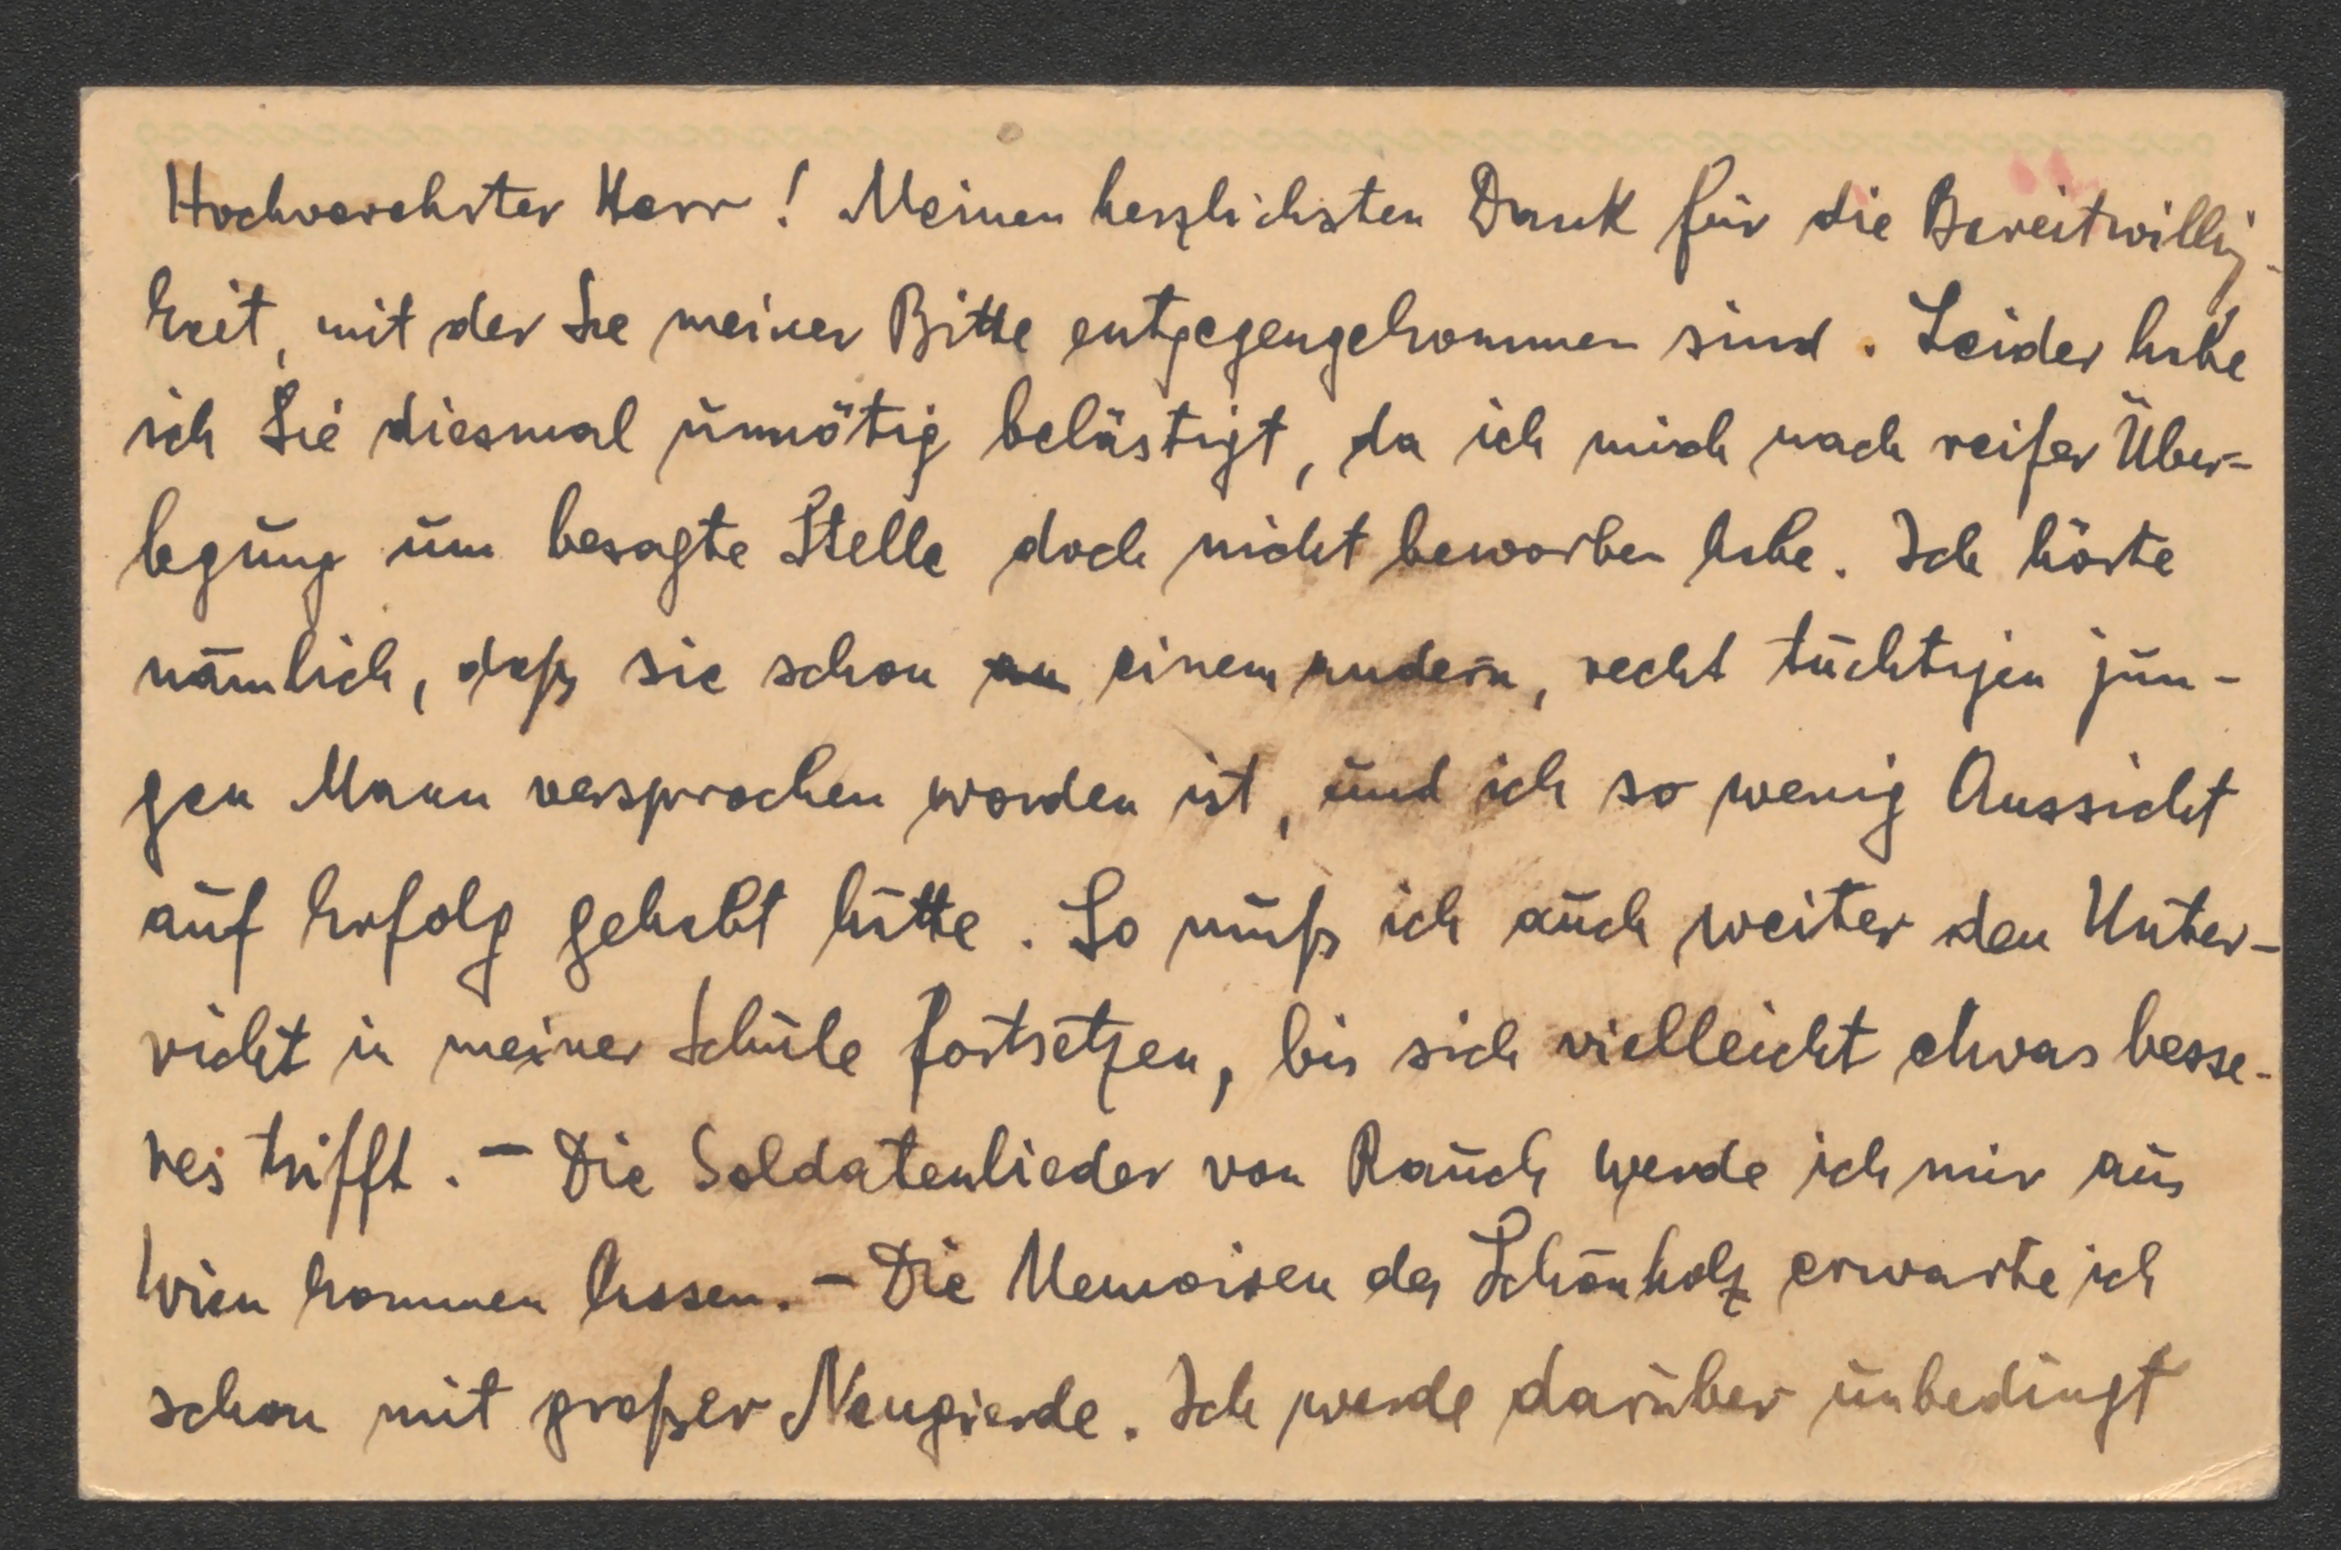 Hochverehrter Herr! Meinen herzlichsten Dank für die Bereitwillig-
keit, mit der Sie meiner Bitte entgegengekommen sind. Leider habe
ich Sie diesmal unnötig belästigt, da ich mich nach reifer Über-
legung um besagte Stelle doch nicht beworben habe. Ich hörte
nämlich, daß sie schon an einem andern, recht tüchtigen jun-
gen Mann versprochen worden ist, und ich so wenig Aussicht
auf Erfolg gehabt hätte. So muß ich auch weiter den Unter-
richt in meiner Schule fortsetzen, bis sich vielleicht etwas besse-
res trifft. – Die Soldatenlieder von Rauch werde ich mir aus
Wien kommen lassen. – Die Memoiren des Schönholz erwarte ich
schon mit großer Neugierde. Ich werde darüber unbedingt